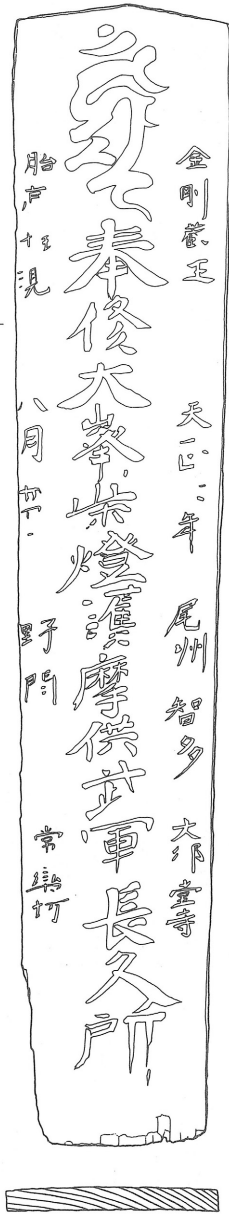 金剛蔵王 天正二年 尾州 智多 大御堂寺
奉修大峯柴燈護摩供武軍長久所
八月 野間 常樂坊